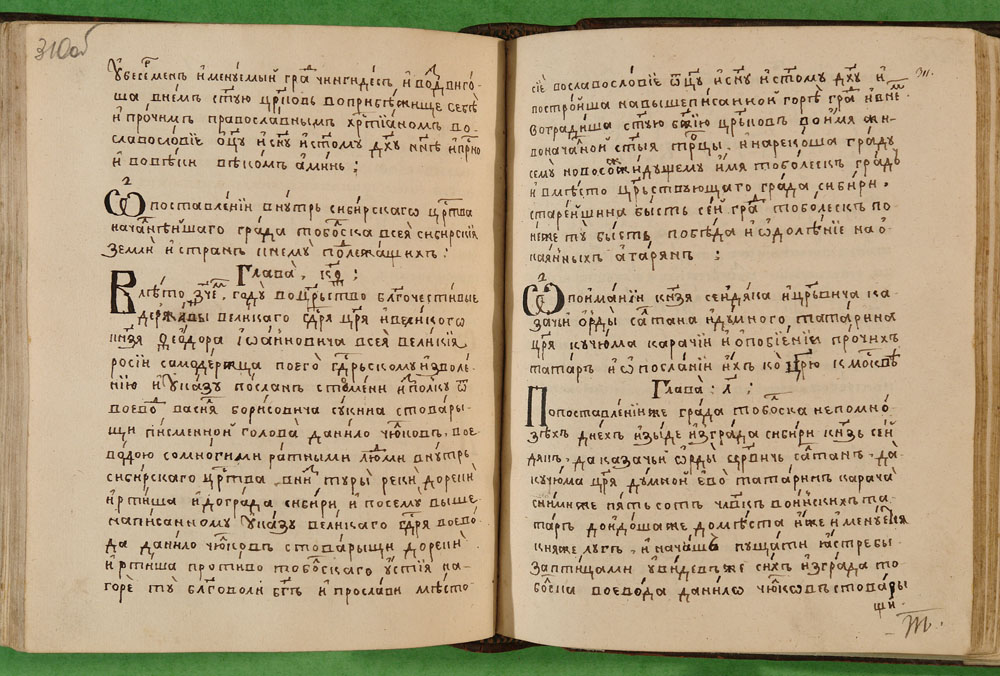 310об
убесермен именуемый град чингидесъ и воздвиго-
ша в нем стую црковь во прибежище себѣ
и прочимъ православнымъ хрстианомъ во
славословие оцу и сну и стому дху ннѣ и прно
и вовѣки вѣкомъ аминь ;
Ѡ поставлении внутрь сибирскагѡ црства
началнѣйшаго града тоболска всея сибирския
земли и странъ к нему прилежащихъ :
Глава , к҃ѳ ;
В лѣто ҂зче году во црьство блгочестивые
державы великаго гдря цря и великогѡ
кнзя ѳеодора Іѡанновича всея великия
росии самодержца по его гдрьскому изволе-
нию и указу посланъ с тюмени и
воевод василя борисовича сукина с товары-
щи писменной голова данило чюлковъ , вое-
водою со многими ратными людми внутрь
сибирского црства вниз туры реки до реки
иртиша и до града сибири и по сему выше
написанному указу великаго гдря воево-
да данило чюлковъ с товарыщи до реки
иртиша противо тоболскаго устия на
горѣ ту благоволи бгъ и прослави мѣсто
сіе во славословіе оцу и сну и стому дху и
построиша на вышеписанной горѣ град и в нем
воградиша стую бжию црьковъ во имя жи-
воначалной стыя трцы , и нарекоша граду
сему новосозидущему имя тоболескъ градъ
и вмѣсто црьствующаго града сибири .
старейшина бысть сей град тоболескъ по
неже ту бысть побѣда и ѡдолѣние на о
каянныхъ агарянъ ;
Ѡ поимании кнзя сейдяка и црьвича ка
зачии орды салтана и думного татарина
цря кучюма карачии и о побиении прочихъ
татаръ и ѡ послании ихъ ко црю к москвѣ
Глава : л҃ ;
По поставлении же града тоболска не по мно
зѣхъ днехъ изыде из града сибири кнзь сей
дякъ , да казачьи ѡрды црвичь салтанъ , да
кучюма цря думной ево татаринъ карача
с ними же пять сотъ члвкъ воинскихъ та-
таръ доидоша же до мѣста иже именуемыя
княже лугъ , и начаша пущати ястребы
за птицами увидевъ же сихъ из града то
болска воевода данилѡ чюлковъ с товары
щи .